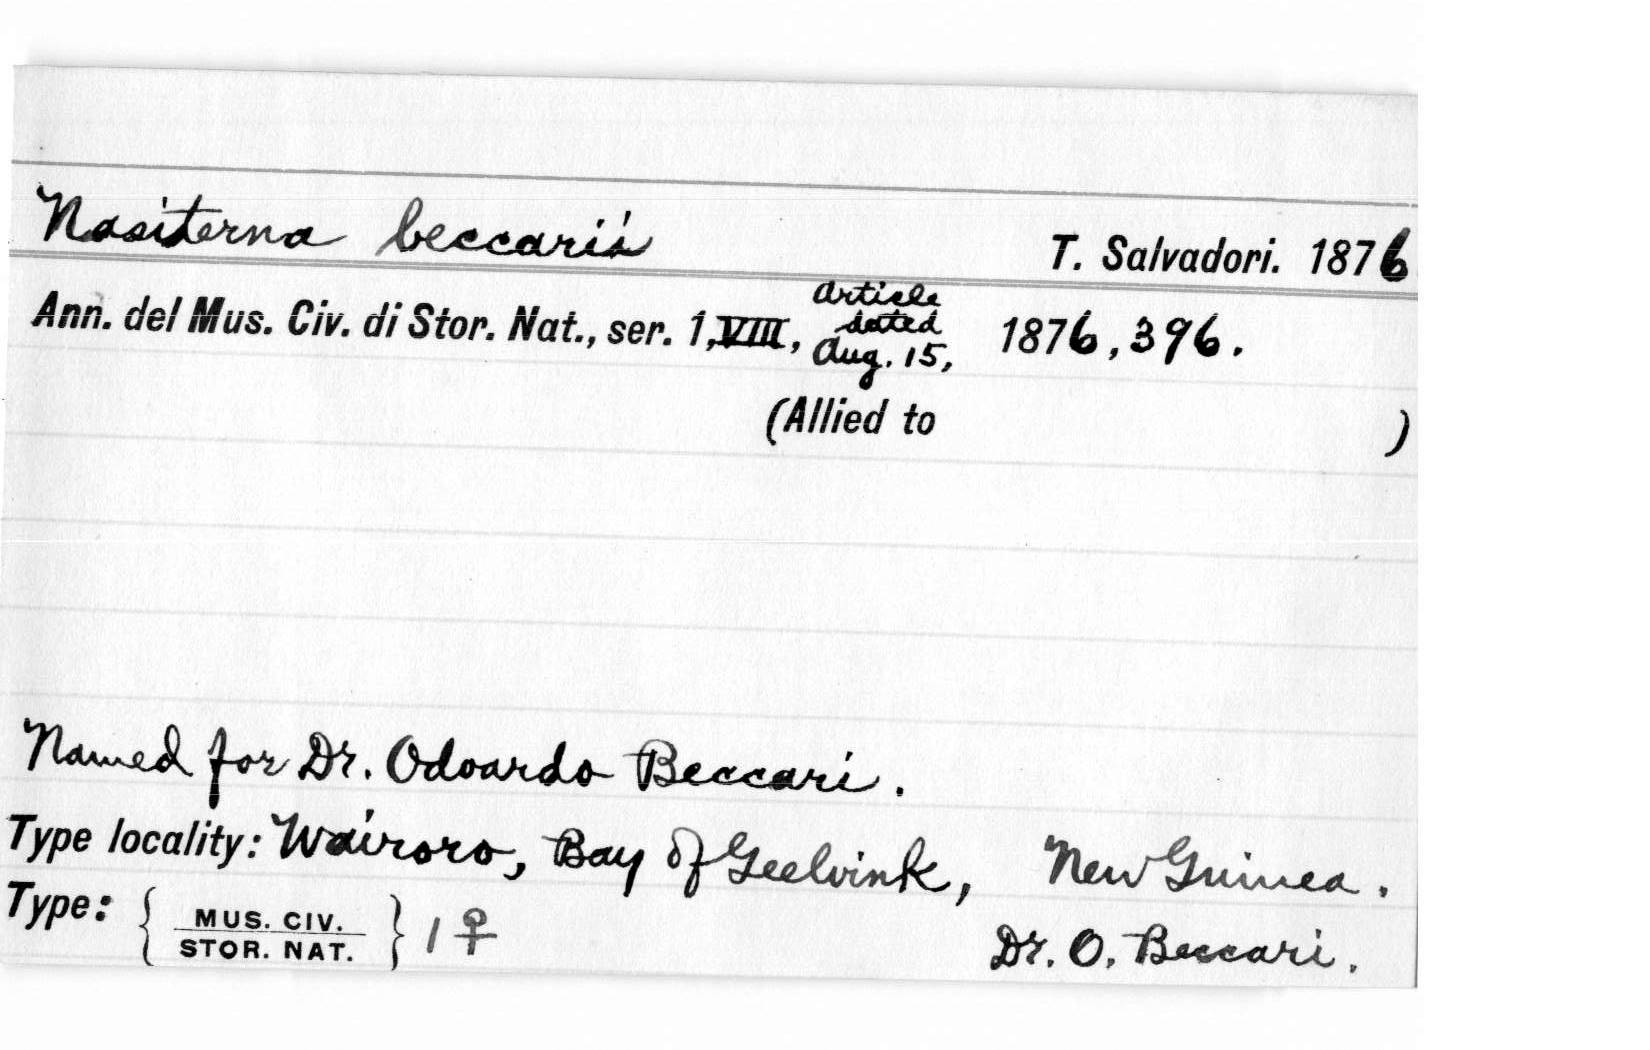 Nasiterna beccarii T. Salvadori. 1876
Ann. del Mus. Civ. di Stor. Nat., ser. 1, VIII, article dated Aug. 15, 1876, 396.
(Allied to )
Named for Dr. Odoardo Beccari.
Type locality: Wairoro, Bay of Geelvink, New Guinea.
Type: { MUS. CIV. STOR. NAT. } 1 ♀ Dr. O. Beccari.